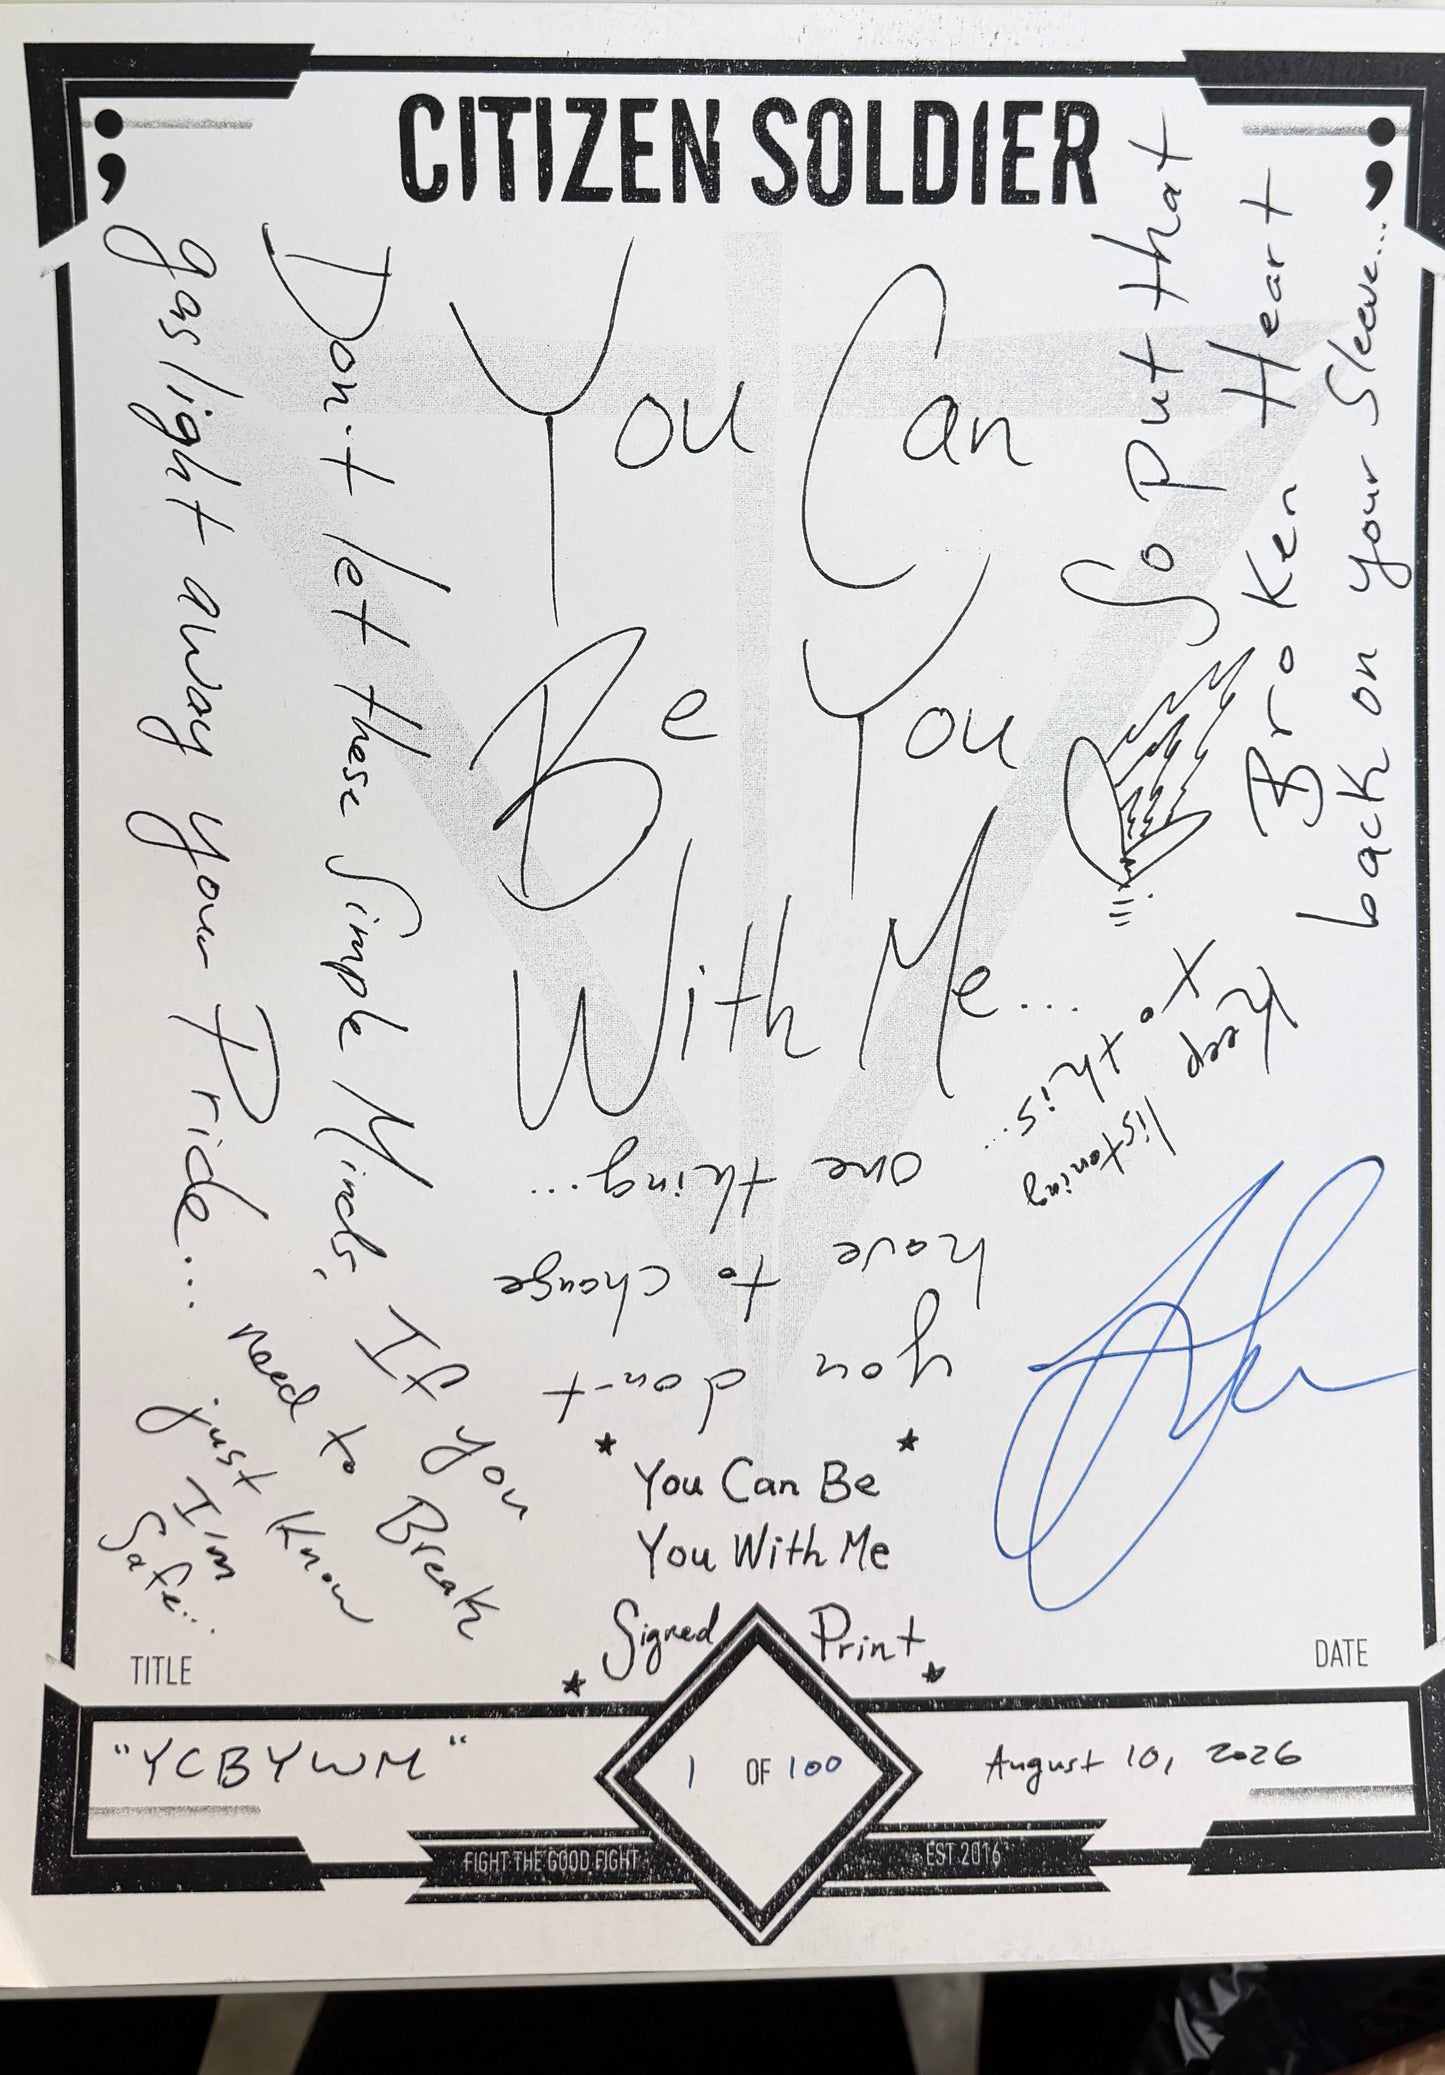 CITIZEN SOLDIER
You Can
Be You
With Me...
Don't let these Simple Minds,
gaslight away your Pride...
If you
need to Break
just Know
I'm
Safe...
you don't
have to change
one thing...
Keep
listening
to this...
So put that
Broken Heart
back on your Sleeve...
You Can Be
You With Me
Signed Print
TITLE
DATE
"YCBYWM"
1 OF 100
August 10, 2026
FIGHT THE GOOD FIGHT
EST 2016